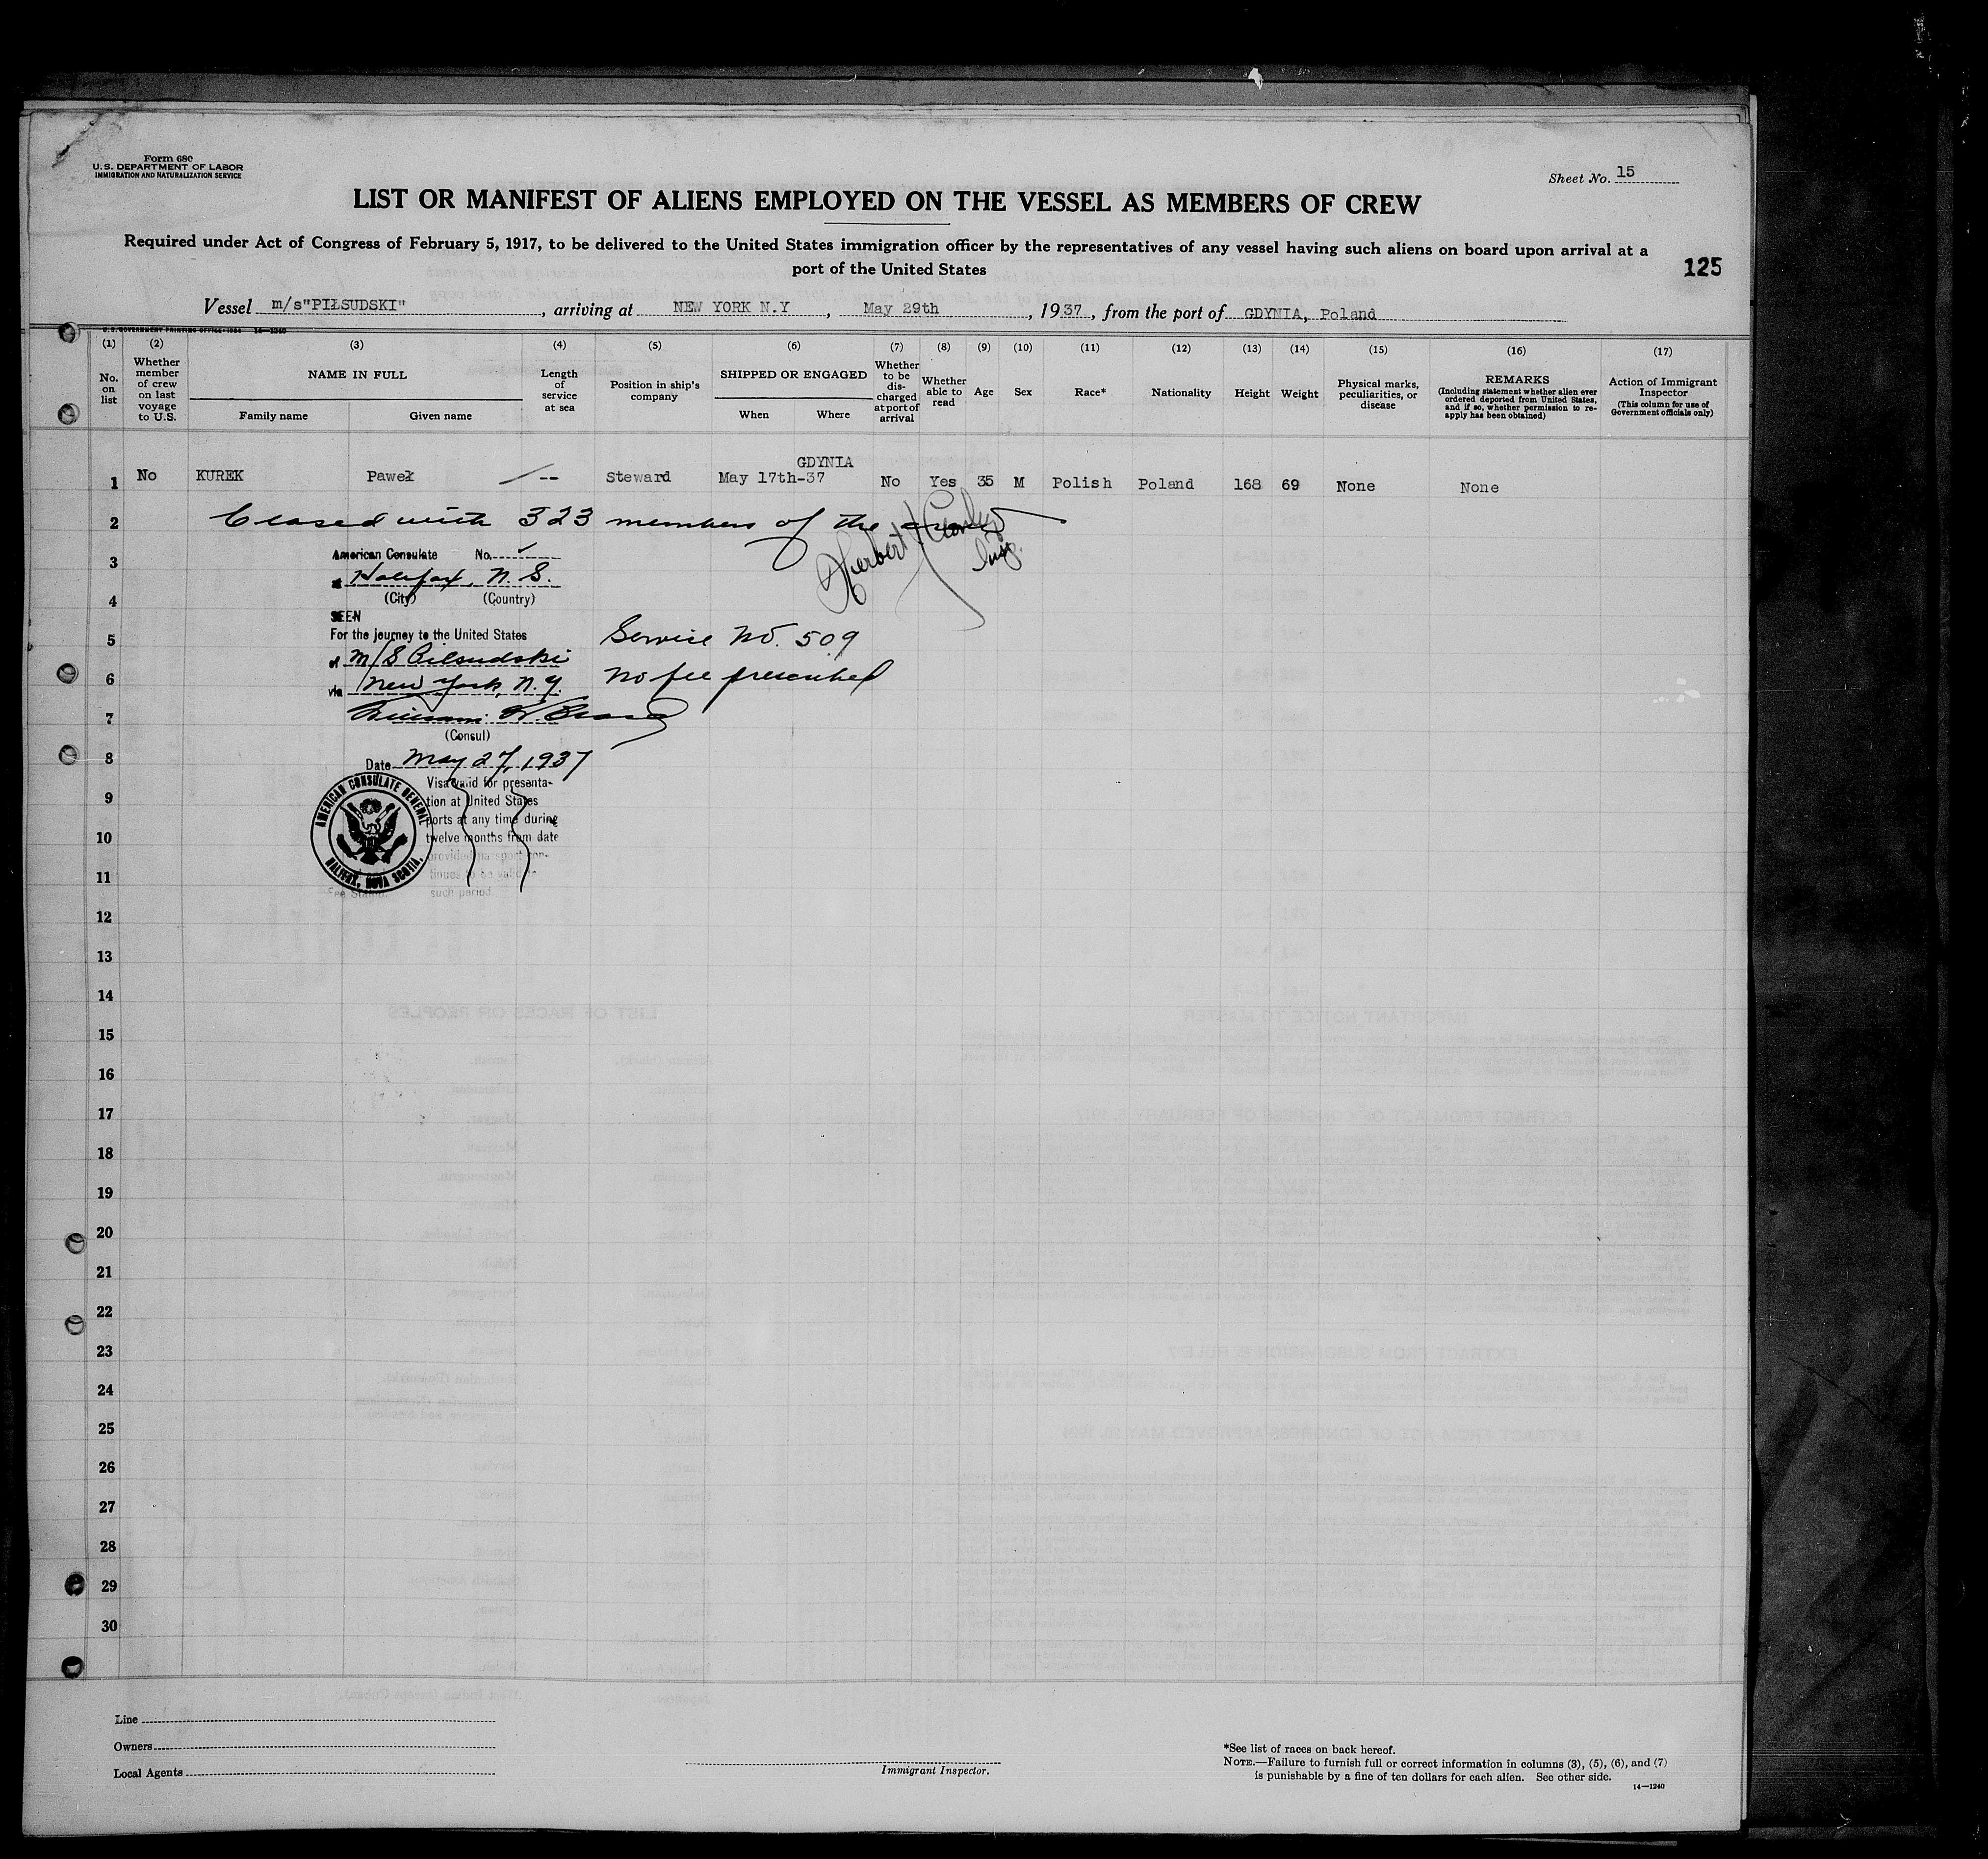 Form 680
U. S. DEPARTMENT OF LABOR
IMMIGRATION AND NATURALIZATION SERVICE
Sheet No. 15
LIST OR MANIFEST OF ALIENS EMPLOYED ON THE VESSEL AS MEMBERS OF CREW
Required under Act of Congress of February 5, 1917, to be delivered to the United States immigration officer by the representatives of any vessel having such aliens on board upon arrival at a
port of the United States
125
Vessel m/s"PIŁSUDSKI", arriving at NEW YORK N.Y, May 29th, 1937, from the port of GDYNIA, Poland
U. S. GOVERNMENT PRINTING OFFICE: 1934 14—1240
(1) (2) (3) (4) (5) (6) (7) (8) (9) (10) (11) (12) (13) (14) (15) (16) (17)
No. on list
Whether member of crew on last voyage to U.S.
NAME IN FULL
Family name Given name
Length of service at sea
Position in ship's company
SHIPPED OR ENGAGED
When Where
Whether to be discharged at port of arrival
Whether able to read
Age
Sex
Race*
Nationality
Height
Weight
Physical marks, peculiarities, or disease
REMARKS
(Including statement whether alien ever ordered deported from United States, and if so, whether permission to reapply has been obtained)
Action of Immigrant Inspector
(This column for use of Government officials only)
GDYNIA
1 No KUREK Paweł -- Steward May 17th-37 No Yes 35 M Polish Poland 168 69 None None
2 Closed with 323 members of the crew
Herbert Insp.
American Consulate No.
3
at Halifax, N. S.
(City) (Country)
4
SEEN
For the journey to the United States
5 Service No. 509
of M/S Pilsudski
6 No fee prescribed
via New York, N.Y.
7
(Consul)
8
Date May 27, 1937
Visa valid for presenta-
9
tion at United States
ports at any time during
10
twelve months from date
provided passport con-
11
tinues to be valid
such period.
AMERICAN CONSULATE GENERAL
HALIFAX, NOVA SCOTIA.
Fee Stamp
12
13
14
15
16
17
18
19
20
21
22
23
24
25
26
27
28
29
30
Line
Owners
Local Agents
Immigrant Inspector.
*See list of races on back hereof.
NOTE.—Failure to furnish full or correct information in columns (3), (5), (6), and (7)
is punishable by a fine of ten dollars for each alien. See other side.
14—1240